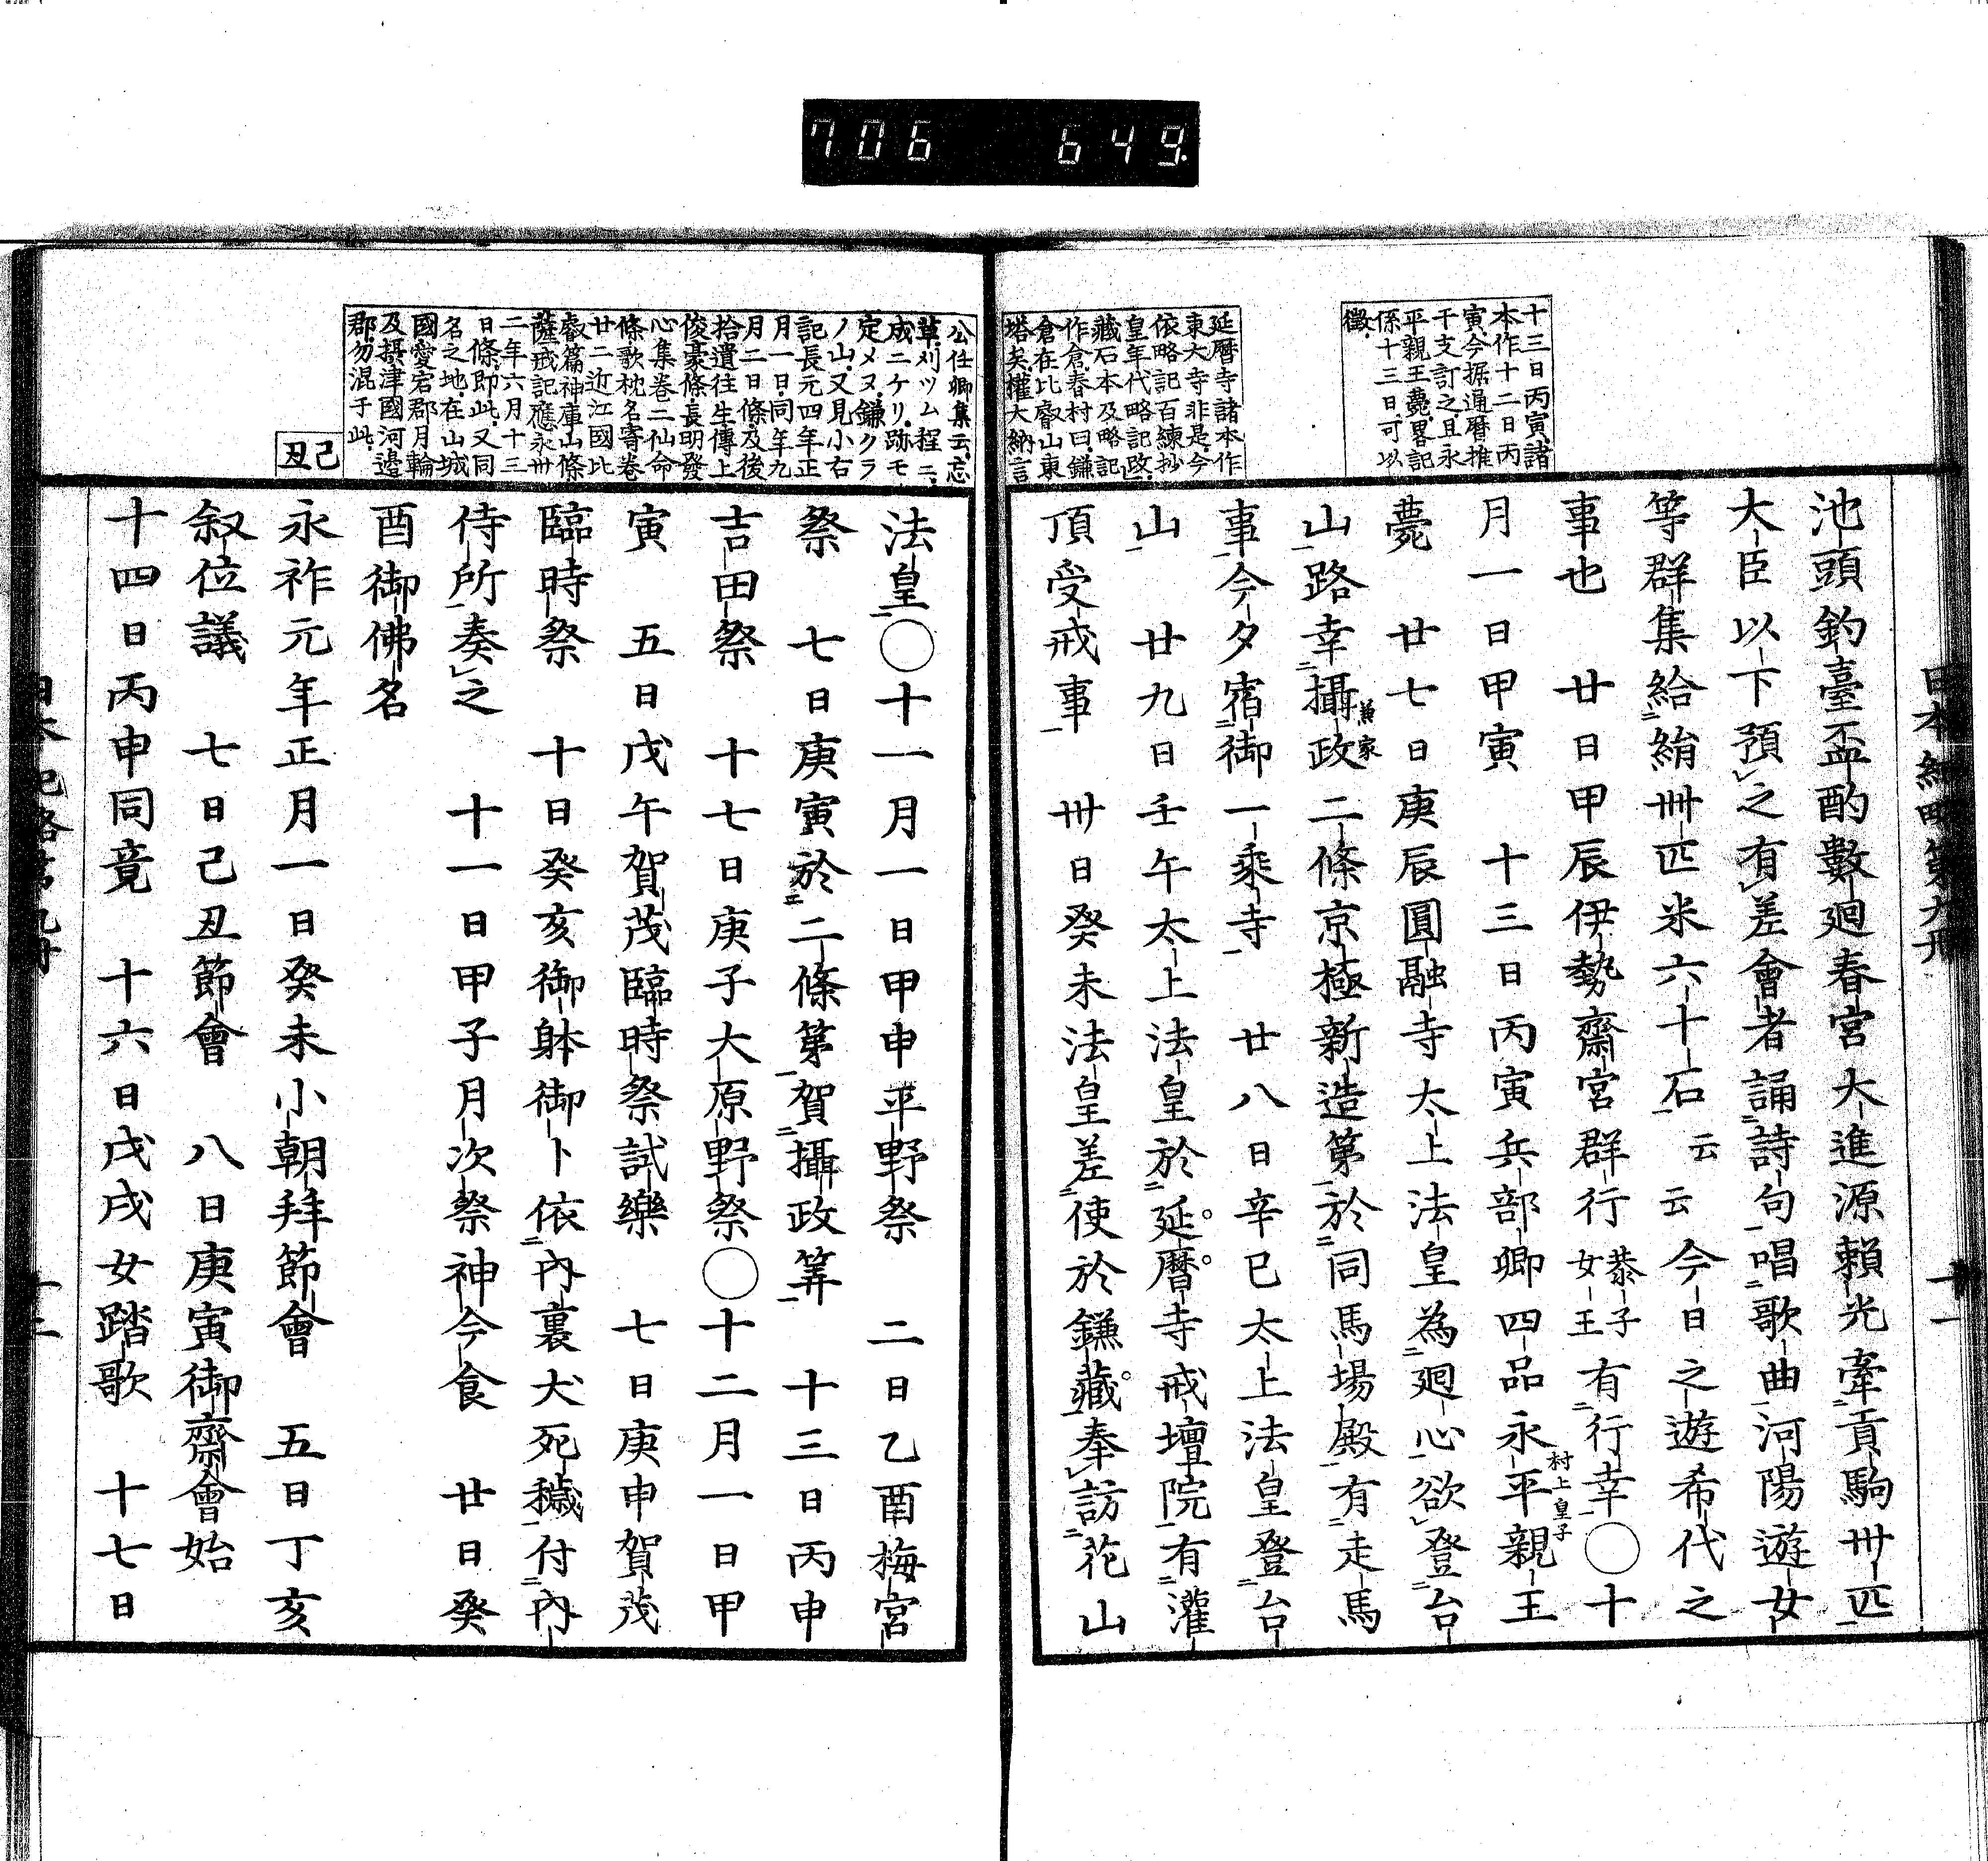 706 649
十三日丙寅諸
本作十二日丙
寅今据通曆推
干支訂之且永
平親王薨畧記
係十三日可以
徵
延曆寺諸本作
東大寺非是今
依略記百練抄
皇年代略記改
藏石本及略記
作倉春村曰鎌
倉在比叡山東
塔矣權大納言
池頭釣臺盃酌數廻春宮大進源賴光牽貢駒卅匹
大臣以下預之有差會者誦詩句唱歌曲河陽遊女
等群集給絹卅匹米六十石云云今日之遊希代之
事也 廿日甲辰伊勢齋宮群行恭子女王有行幸〇十
月一日甲寅 十三日丙寅兵部卿四品永平親王村上皇子
薨 廿七日庚辰圓融寺太上法皇為廻心欲登台
山路幸攝政兼家二條京極新造第於同馬場殿有走馬
事今夕宿御一乘寺 廿八日辛巳太上法皇登台
山 廿九日壬午太上法皇於延曆寺戒壇院有灌
頂受戒事 卅日癸未法皇差使於鎌藏奉訪花山
公任卿集云忘
草刈ツム程ニ
成ニケリ跡モ
定メヌ鎌クラ
ノ山又見小右
記長元四年正
月一日同年九
月二日條及後
拾遺往生傳上
俊豪條長明發
心集卷二仙命
條歌枕名寄卷
廿二近江國比
叡篇神庫山條
薩戒記應永卅
二年六月十三
日條即此又同
名之地在山城
國愛宕郡月輪
及攝津國河邊
郡勿混于此
己丑
法皇〇十一月一日甲申平野祭 二日乙酉梅宮
祭 七日庚寅於二條第賀攝政筭 十三日丙申
吉田祭 十七日庚子大原野祭〇十二月一日甲
寅 五日戊午賀茂臨時祭試樂 七日庚申賀茂
臨時祭 十日癸亥御躰御卜依內裏犬死穢付內
侍所奏之 十一日甲子月次祭神今食 廿日癸
酉御佛名
永祚元年正月一日癸未小朝拜節會 五日丁亥
叙位議 七日己丑節會 八日庚寅御齋會始
十四日丙申同竟 十六日戊戌女踏歌 十七日